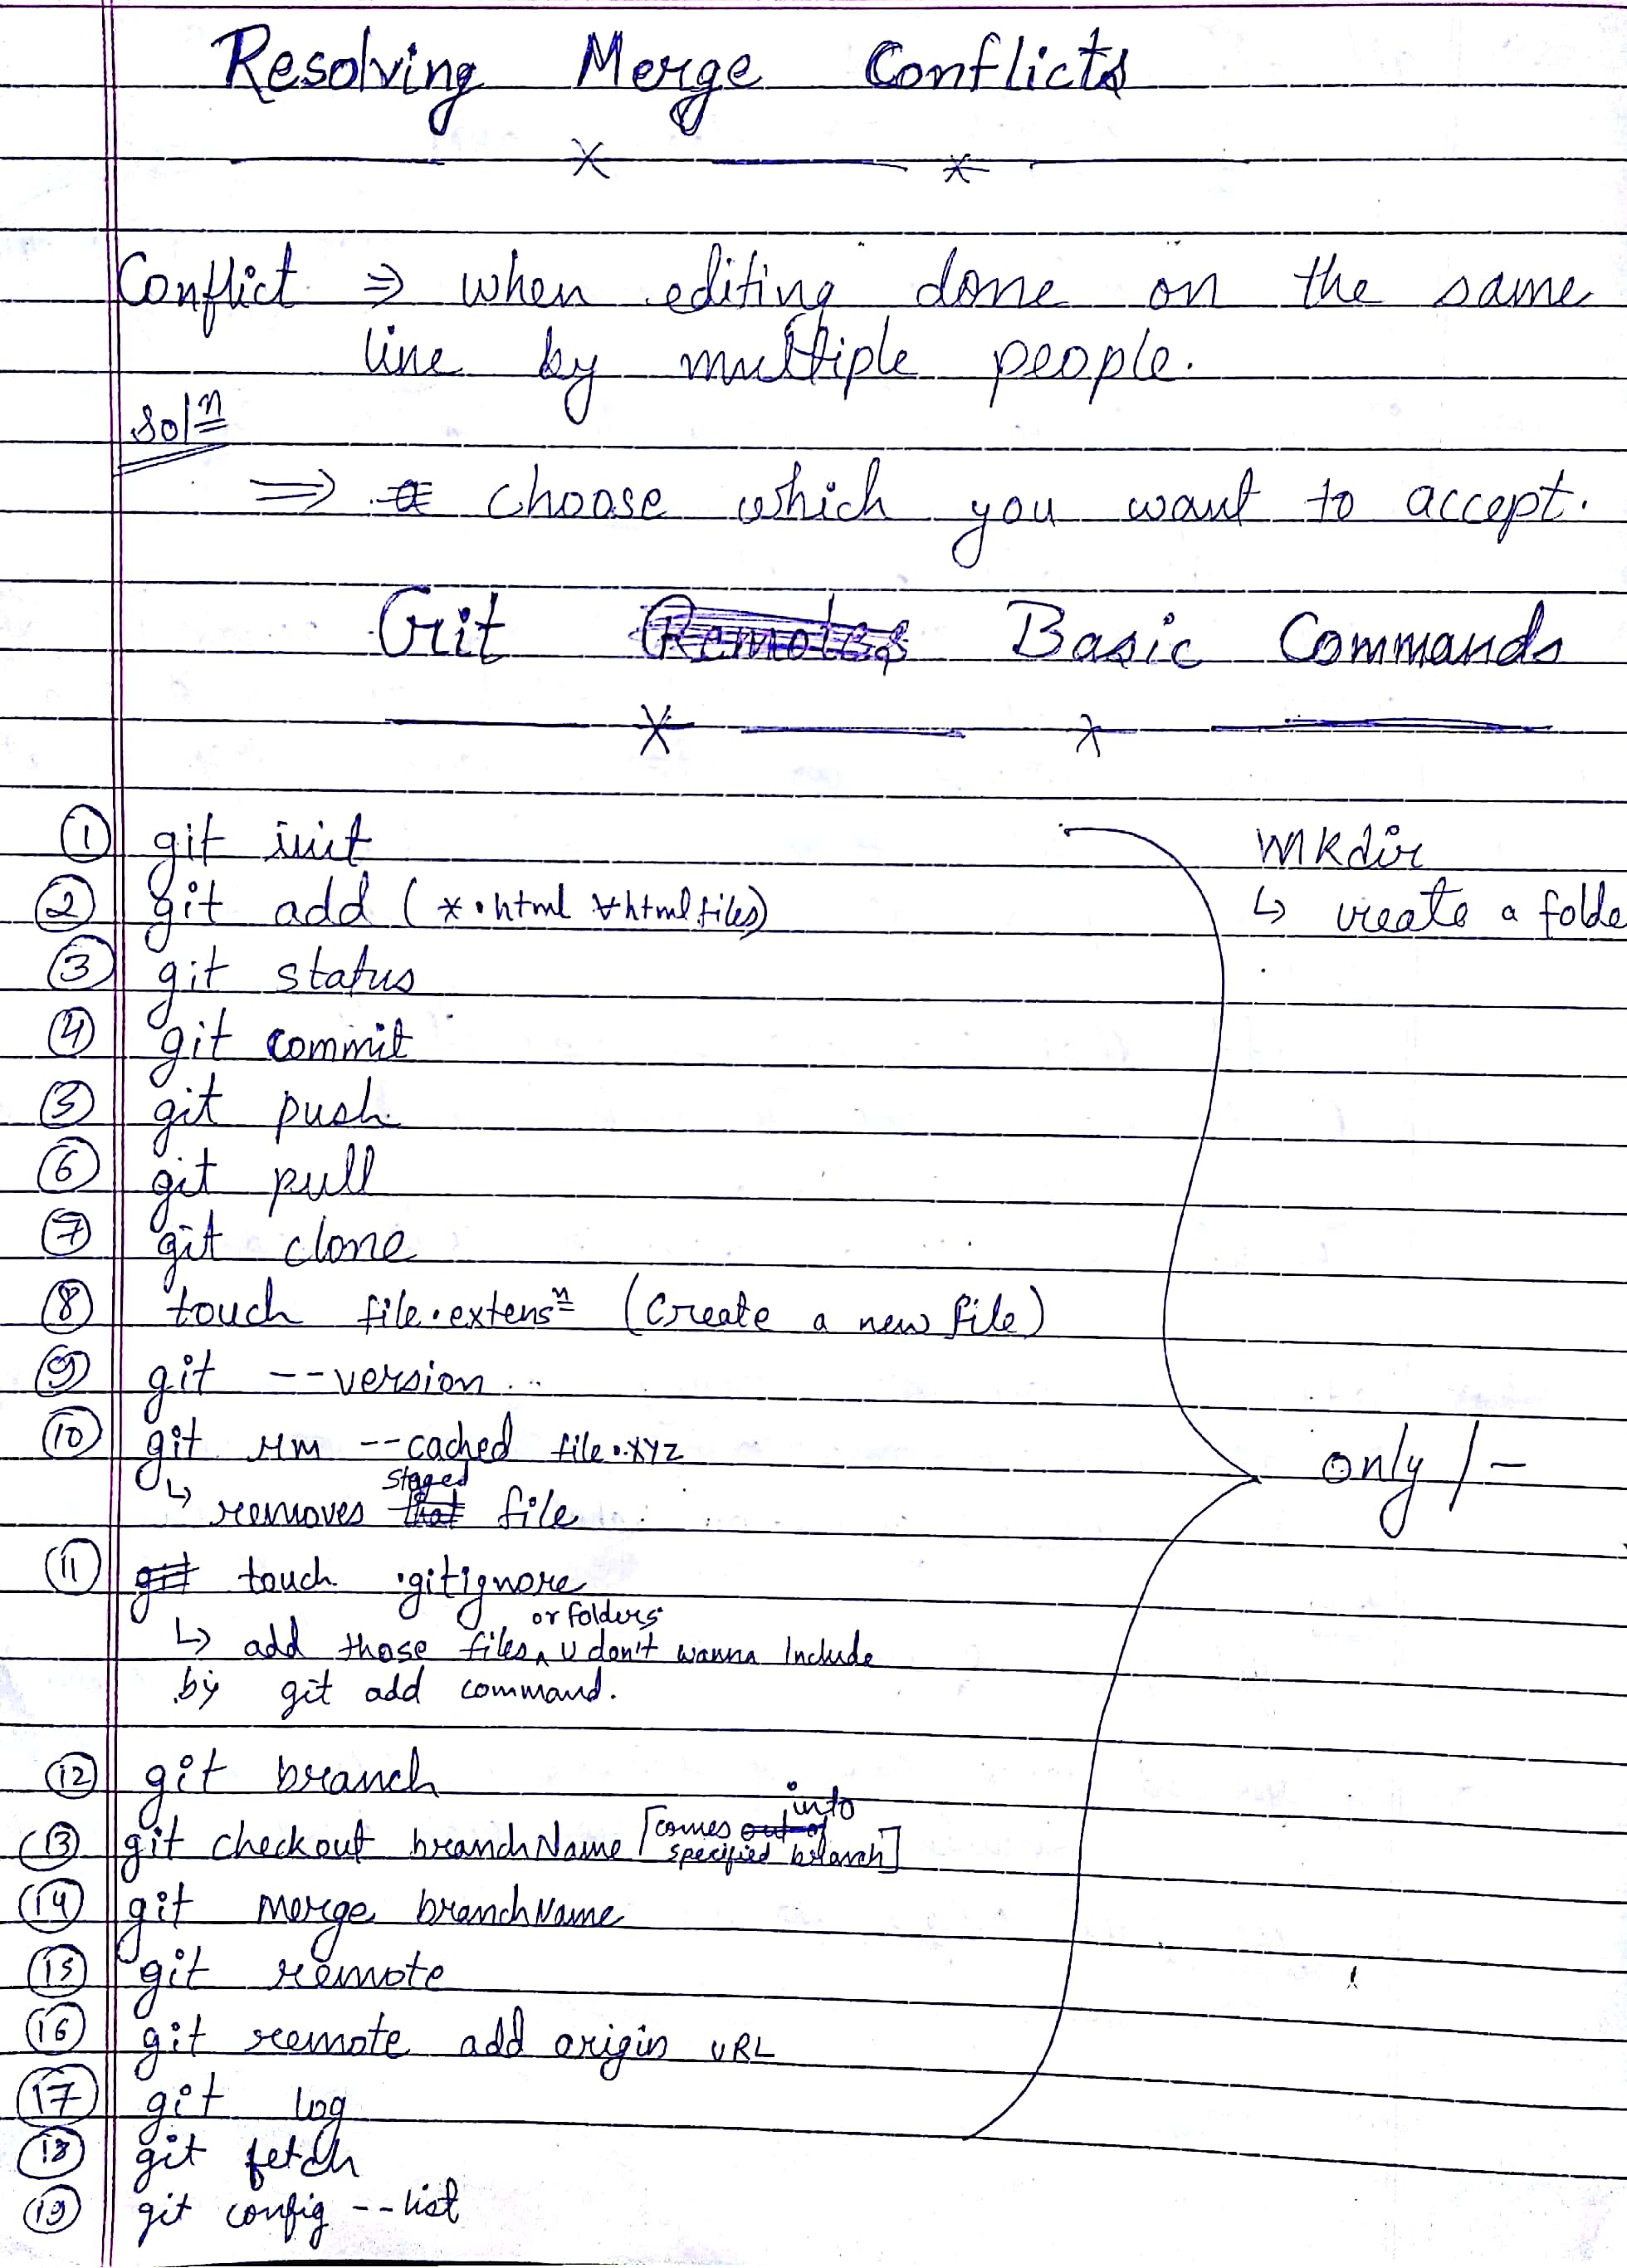 Resolving Merge Conflicts
Conflict ⇒ when editing done on the same
line by multiple people.
Solⁿ
⇒ choose which you want to accept.
Git Remotes Basic Commands
① git init
mkdir
② git add (*.html ∀ html files)
↳ create a folde
③ git status
④ git commit
⑤ git push
⑥ git pull
⑦ git clone
⑧ touch file.extensⁿ (Create a new file)
⑨ git --version
⑩ git rm --cached file.XYZ
only /-
staged
↳ removes that file
⑪ git touch .gitignore
or folders
↳ add those files ^ U don't wanna Include
by git add command.
⑫ git branch
into
⑬ git checkout branchName [comes out of
specified branch]
⑭ git merge branchName
⑮ git remote
⑯ git remote add origin URL
⑰ git log
⑱ git fetch
⑲ git config --list